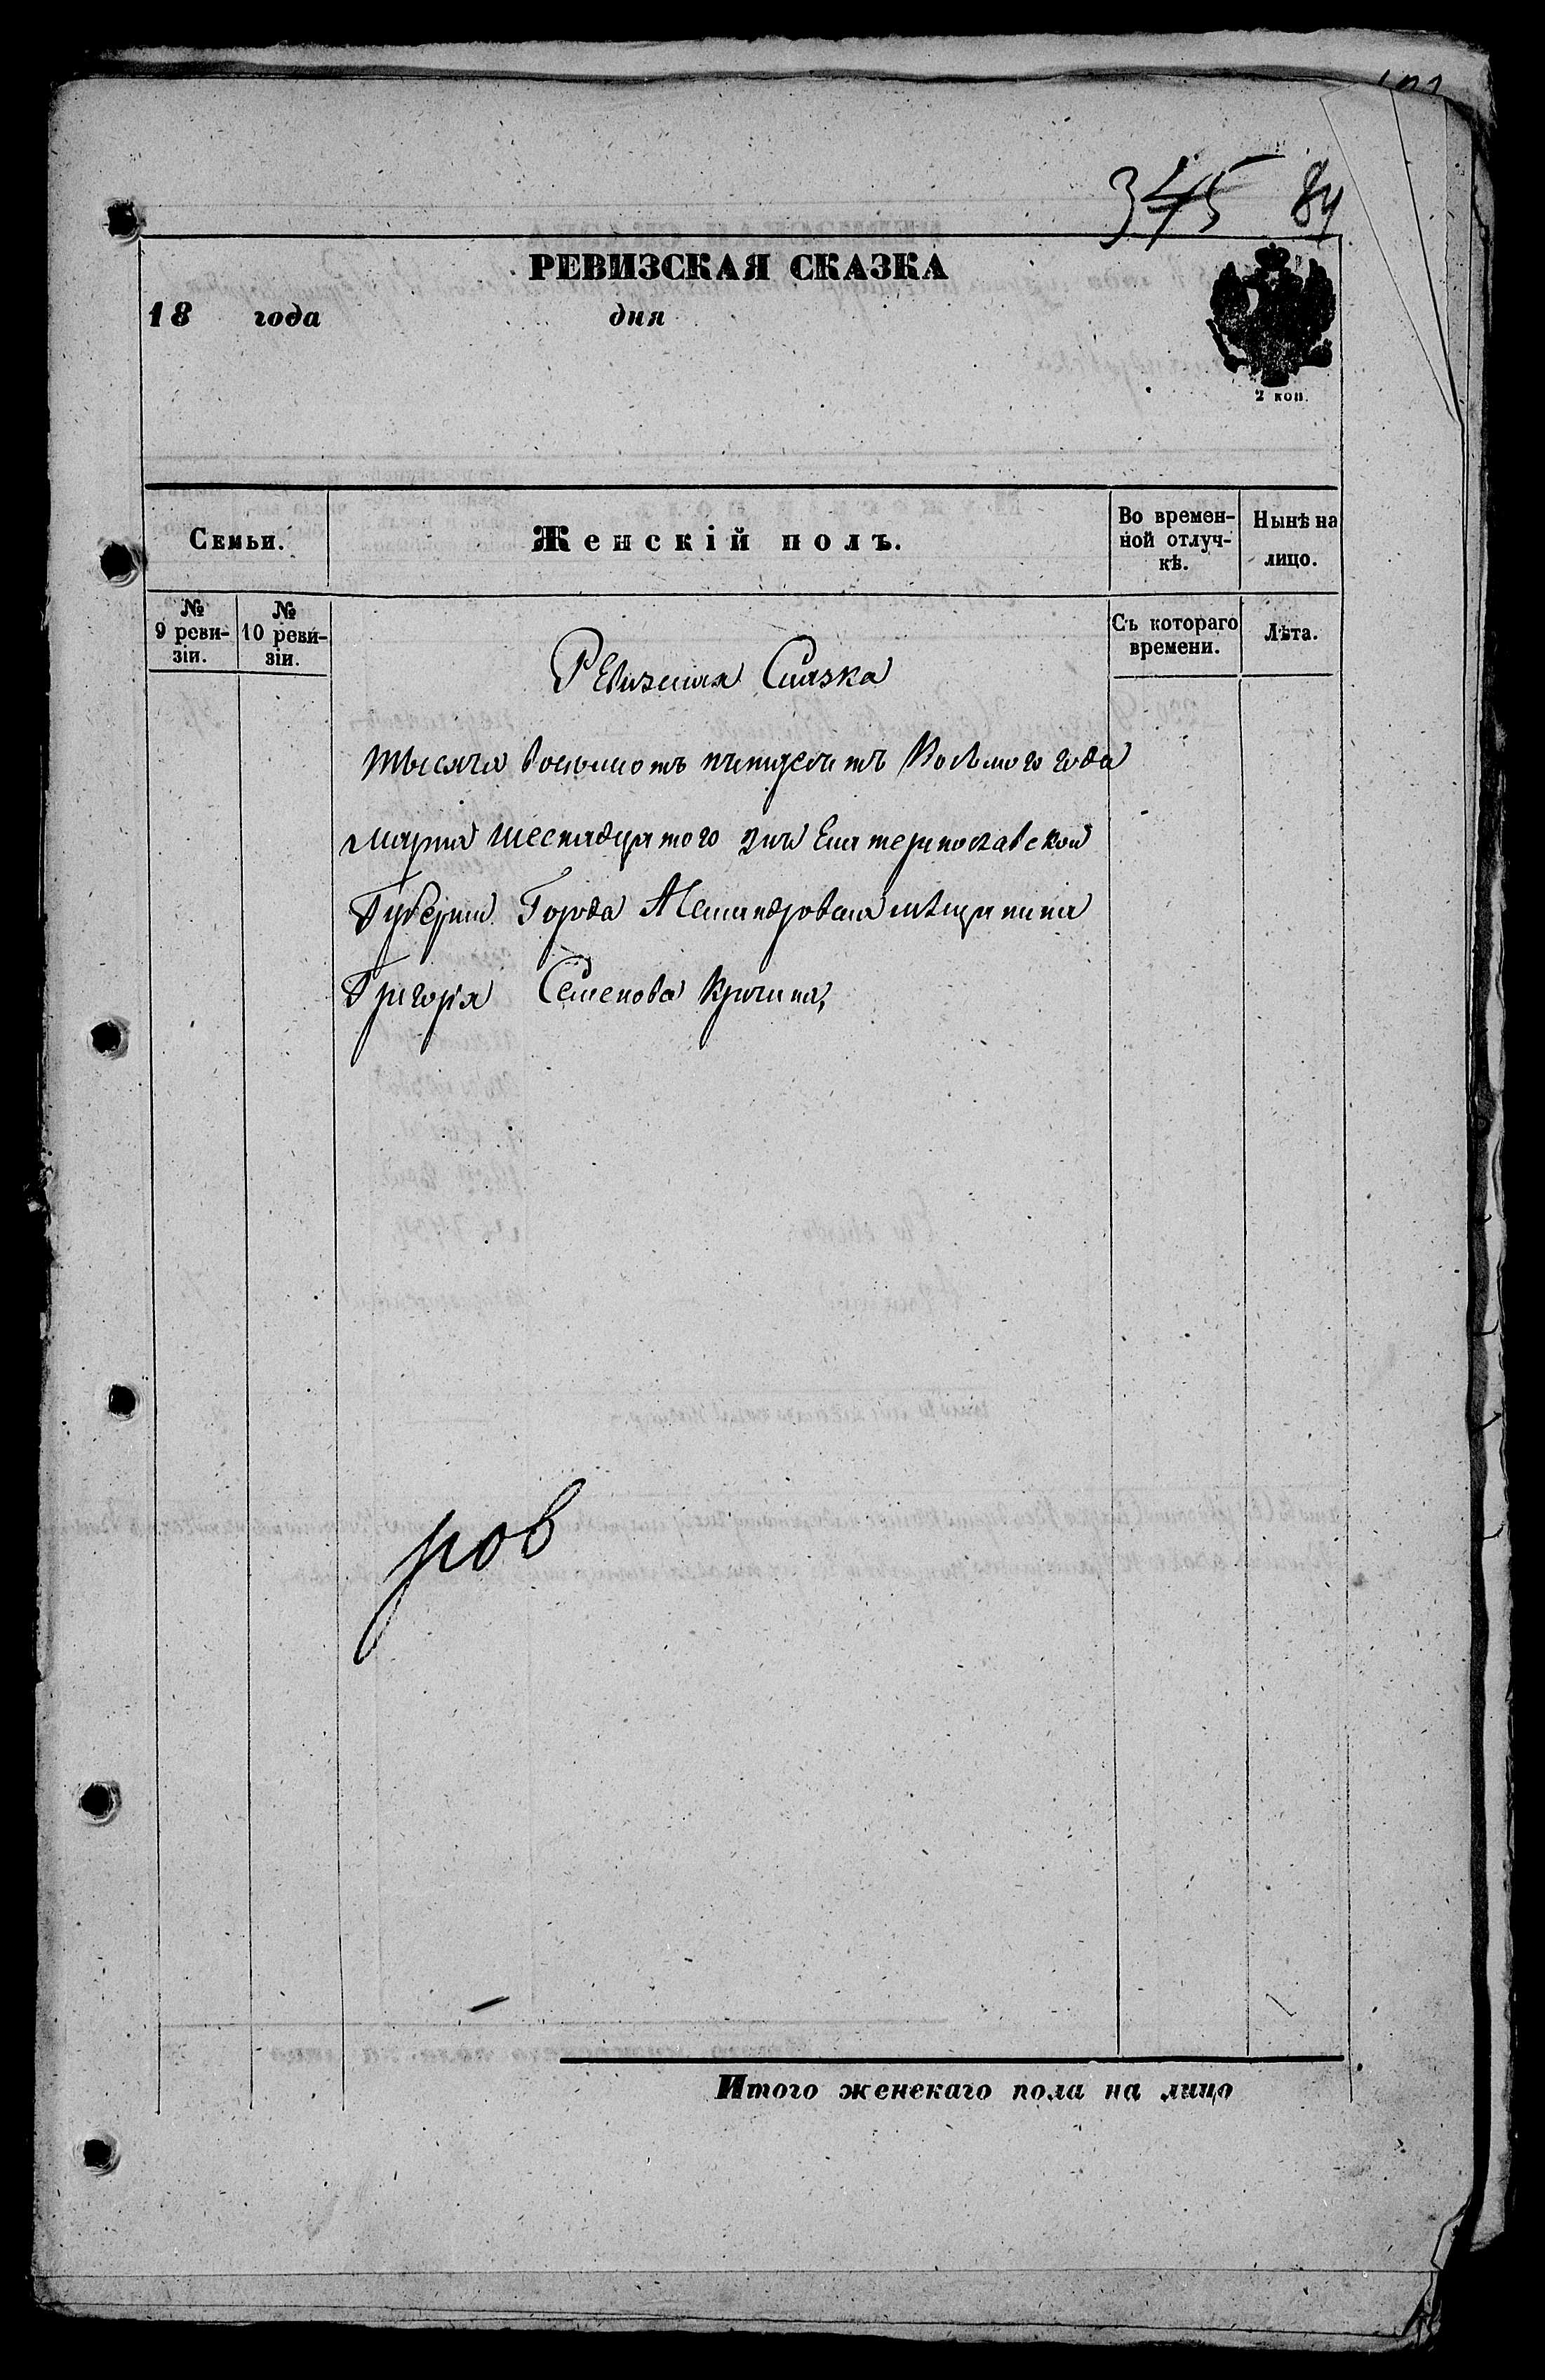 345 84
РЕВИЗСКАЯ СКАЗКА
18 года дня
2 коп.
Семьи.
Женскій полъ.
Во времен-
ной отлуч-
кѣ.
Нынѣ на
лицо.
№
9 реви-
зіи.
№
10 реви-
зіи.
Съ котораго
времени.
Лѣта.
Ревизская Сказка
тысяча восемьсотъ пятдесятъ Восьмого года
марта шеснадцятого дня Екатеринославской
Губерніи Города Александровска мѣщанина
Григорія Семенова Кричина,
ров
Итого женскаго пола на лицо